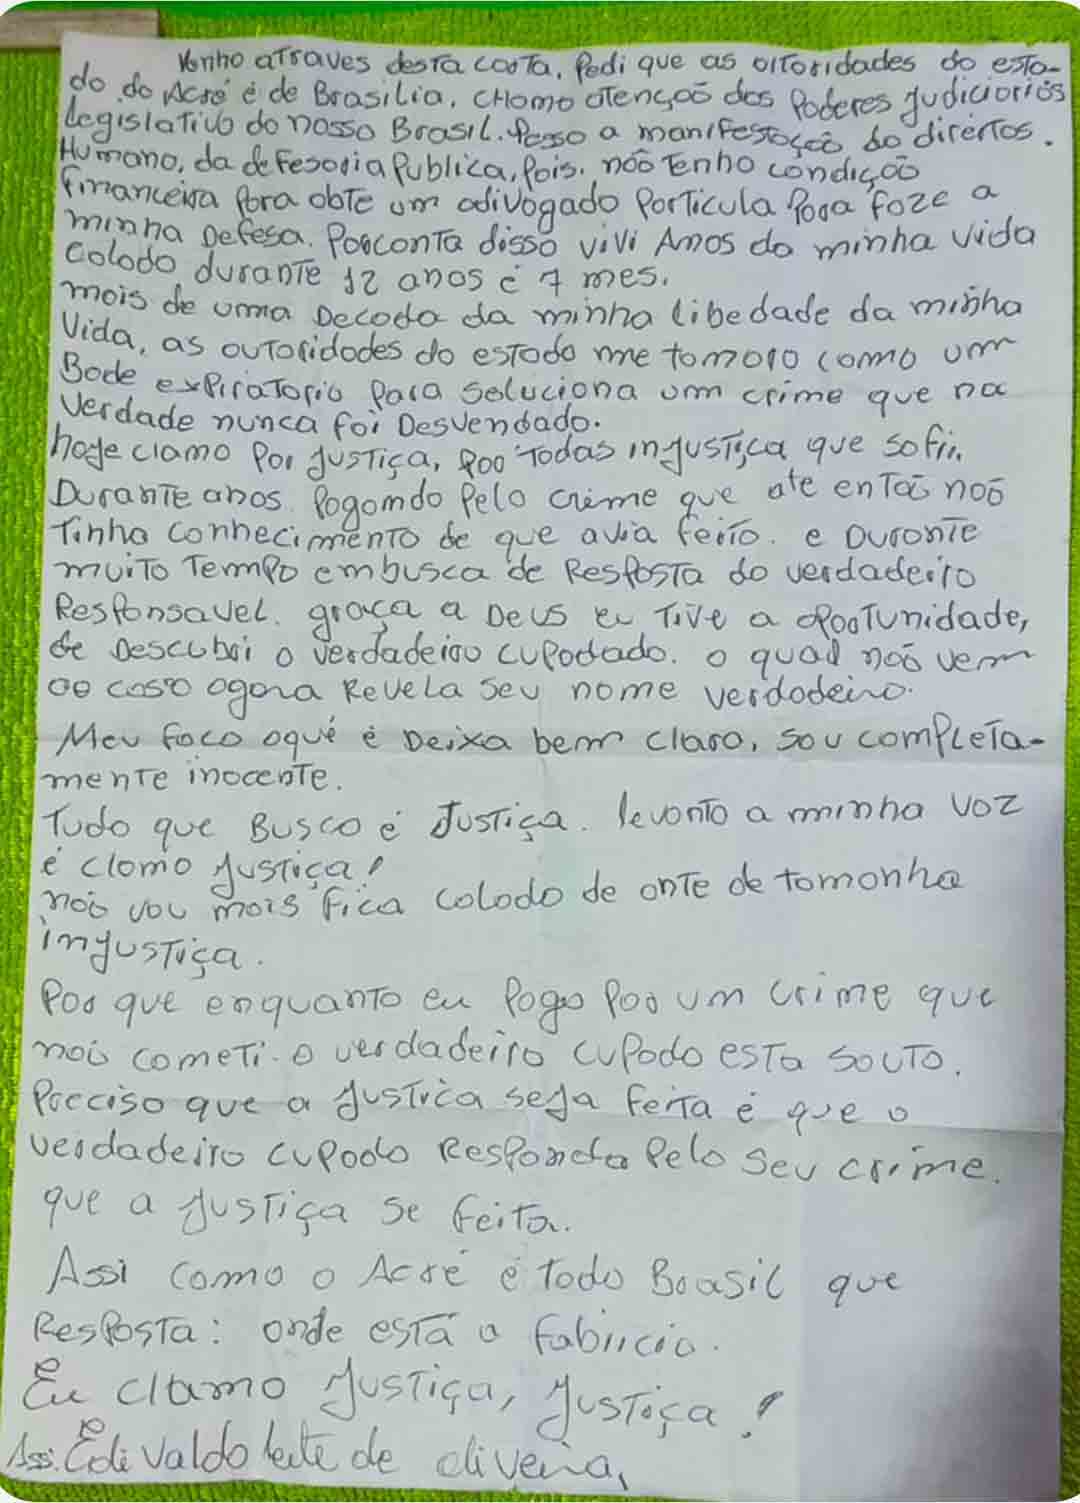 Venho atraves desta carta, Pedi que as oitoridades do esta-
do do Acre é de Brasilia, cHomo atençoõ dos Poderes judiciorios
legislativo do nosso Brasil. Posso a manifestoçoõ do direitos.
Humano, da defesoria Publica, Pois. noõ Tenho condiçoõ
financeira Para obte um adivogado Porticula Para foze a
minha Defesa. Porconta disso vivi Anos da minha vida
Colodo durante 12 anos é 7 mes.
mois de uma Decoda da minha libedade da minha
Vida, as outoridodes do estado me tomoro como um
Bode expiratorio Para soluciona um crime que na
verdade nunca foi Desvendado.
hoje clamo Por justiça, Poo todas injustiça que sofri.
Durante anos. Pogomdo Pelo crime que ate entaõ noõ
Tinha conhecimento de que avia feito. e Duronte
muito Tempo embusca de Resposta do verdadeiro
Responsavel. graça a Deus eu Tive a opootunidade,
de Descubri o verdadeiro cupodado. o quad noõ vem
ao caso agora Revela seu nome verdodeiro.
Meu foco oqué é Deixa bem claro, sou completa-
mente inocente.
Tudo que Busco é Justiça. levonto a minha voz
é clomo justiça!
noõ vou mois fica colodo de onte de tomonha
injustiça.
Por que enquanto eu Pogo Poo um crime que
noõ cometi. o verdadeiro cupodo esta souto.
Preciso que a justiça seja feita é que o
verdadeiro cupodo Responda Pelo seu crime.
que a justiça se feita.
Assi como o Acre é todo Brasil que
Resposta: onde está a Fabricio.
Eu clamo justiça, justiça!
Ass: Edivaldo leite de oliveira,